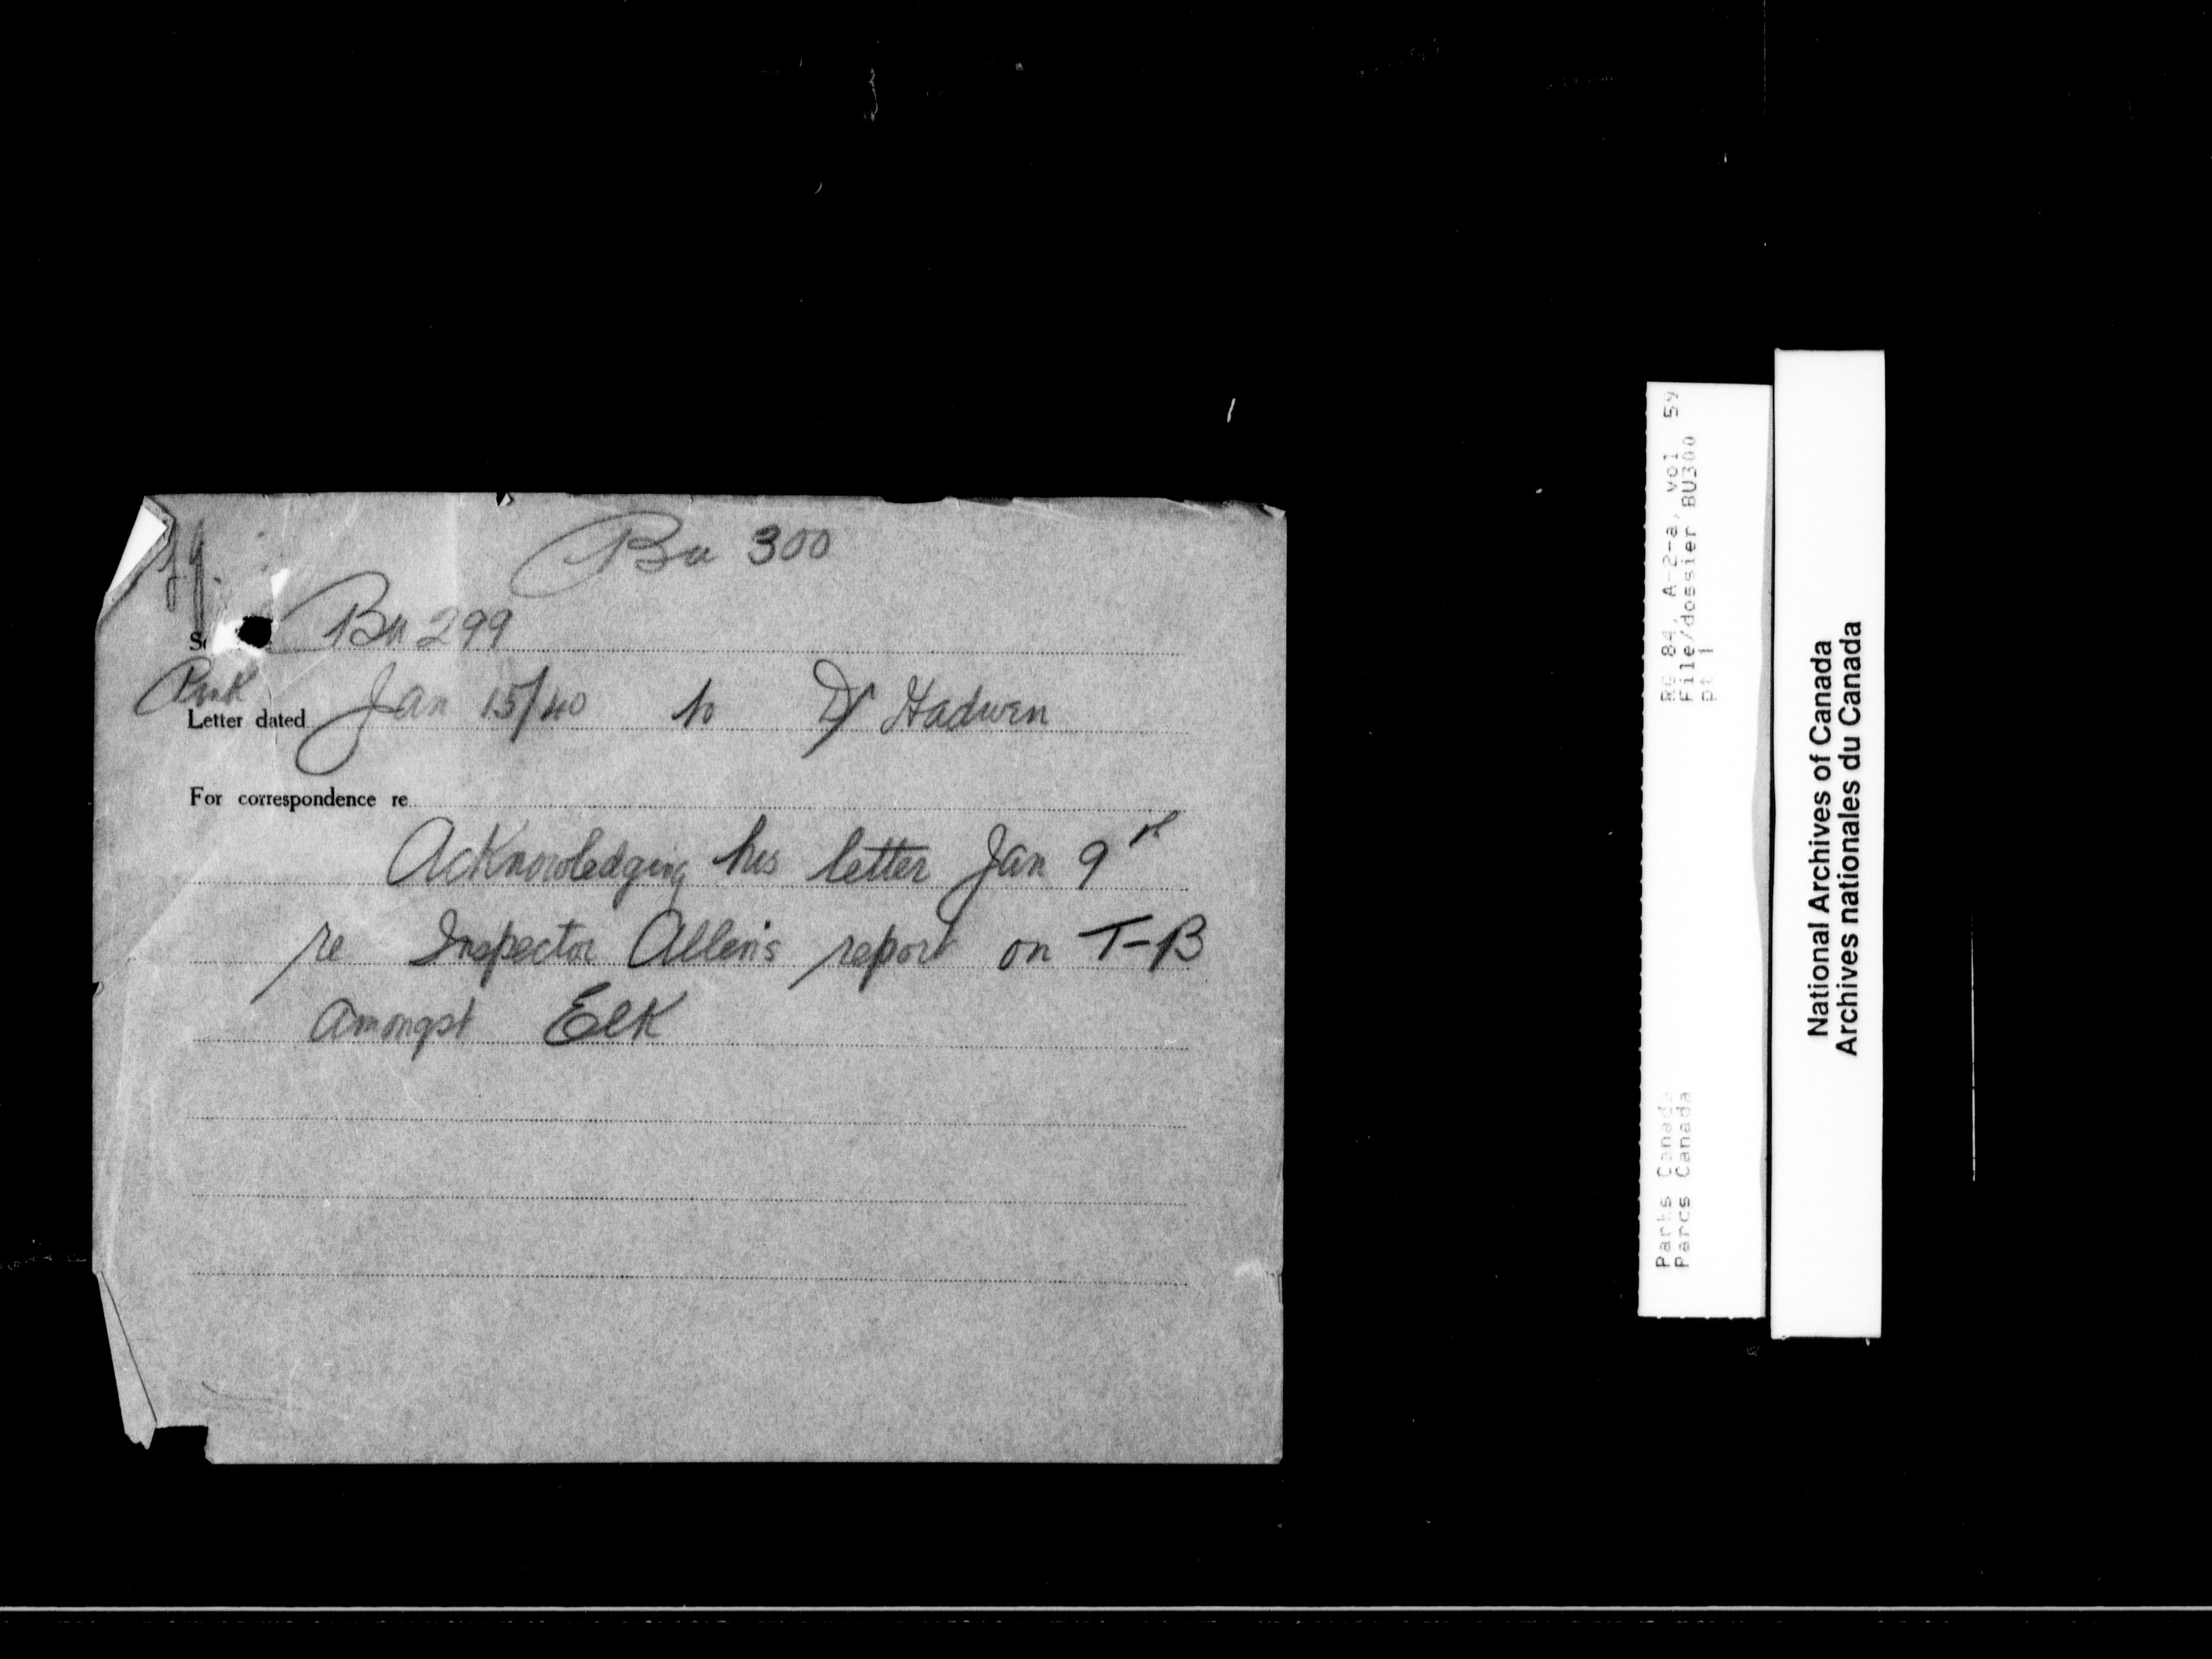 Bu 300
Bu 299
Pink
Letter dated Jan 15/40 to Dr Hadwen
For correspondence re
Acknowledging his letter Jan 9th
re Inspector Allen's report on T-B
amongst Elk
RG 84, A-2-a, vol.
File/dossier BU300
pt 1
Parks Canada
Parcs Canada
National Archives of Canada
Archives nationales du Canada